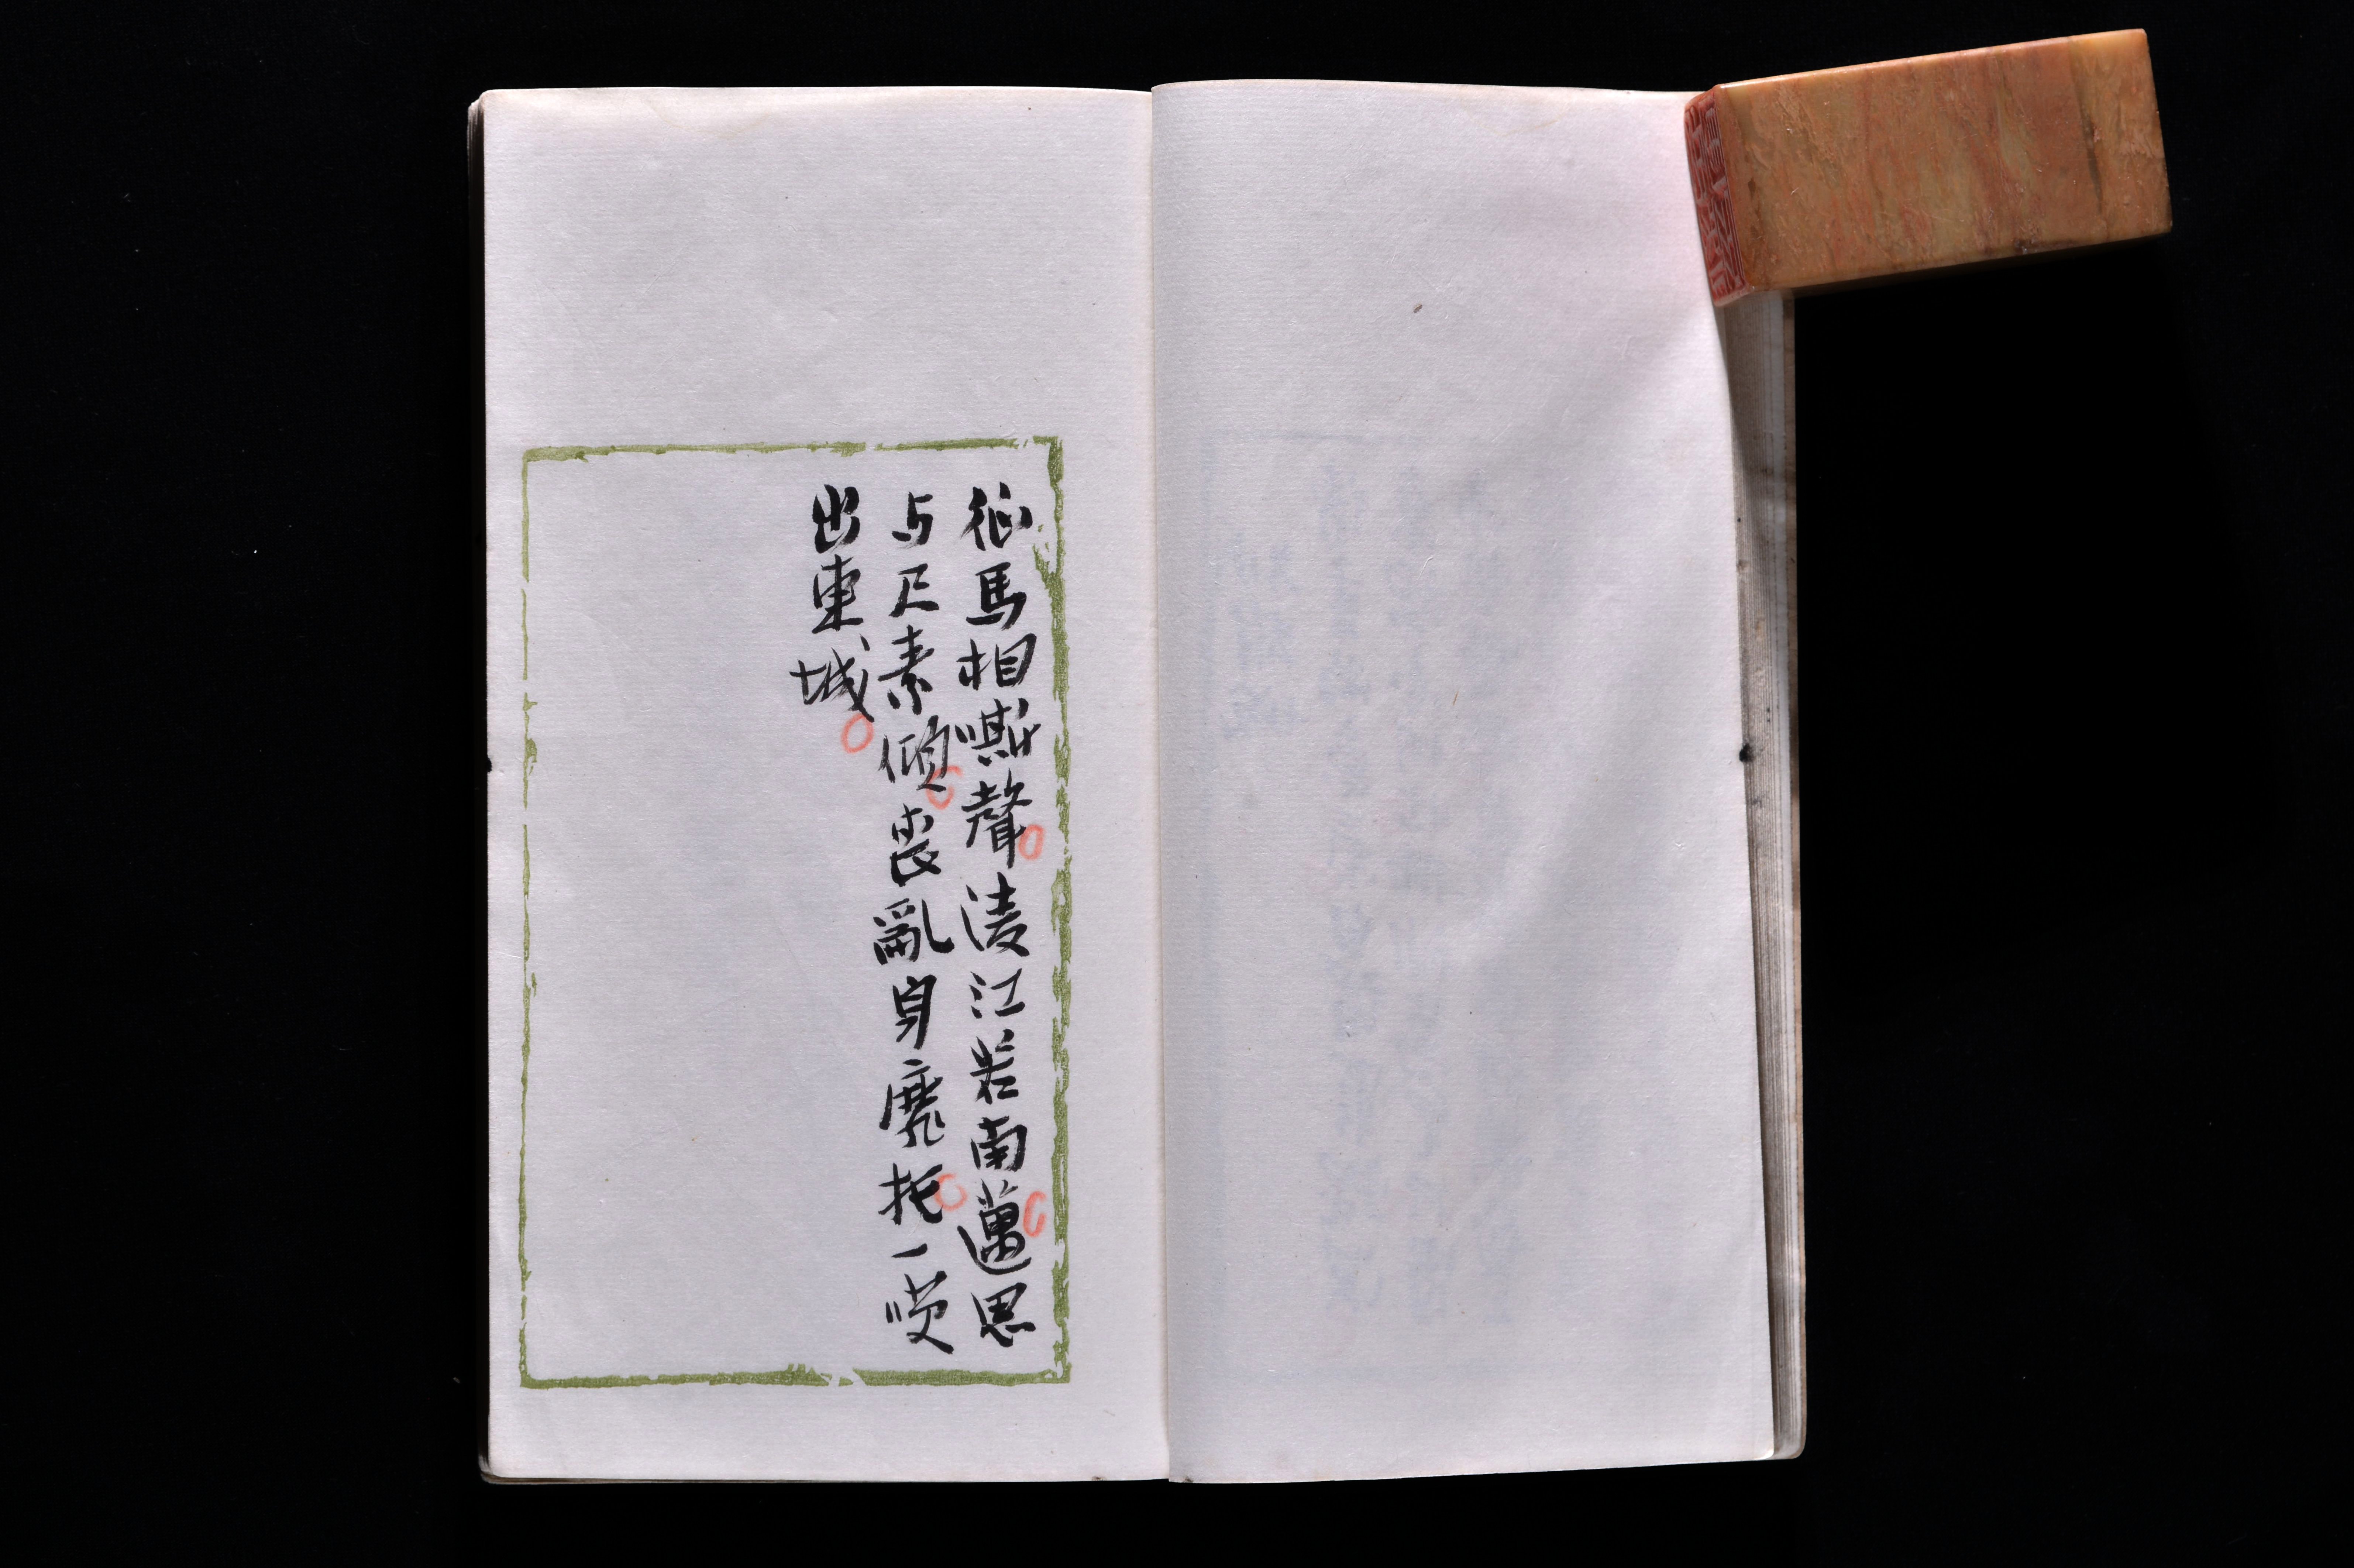 征馬相嘶聲淩江若南邁思
与尺素傾喪亂身靡托一咲
出東城